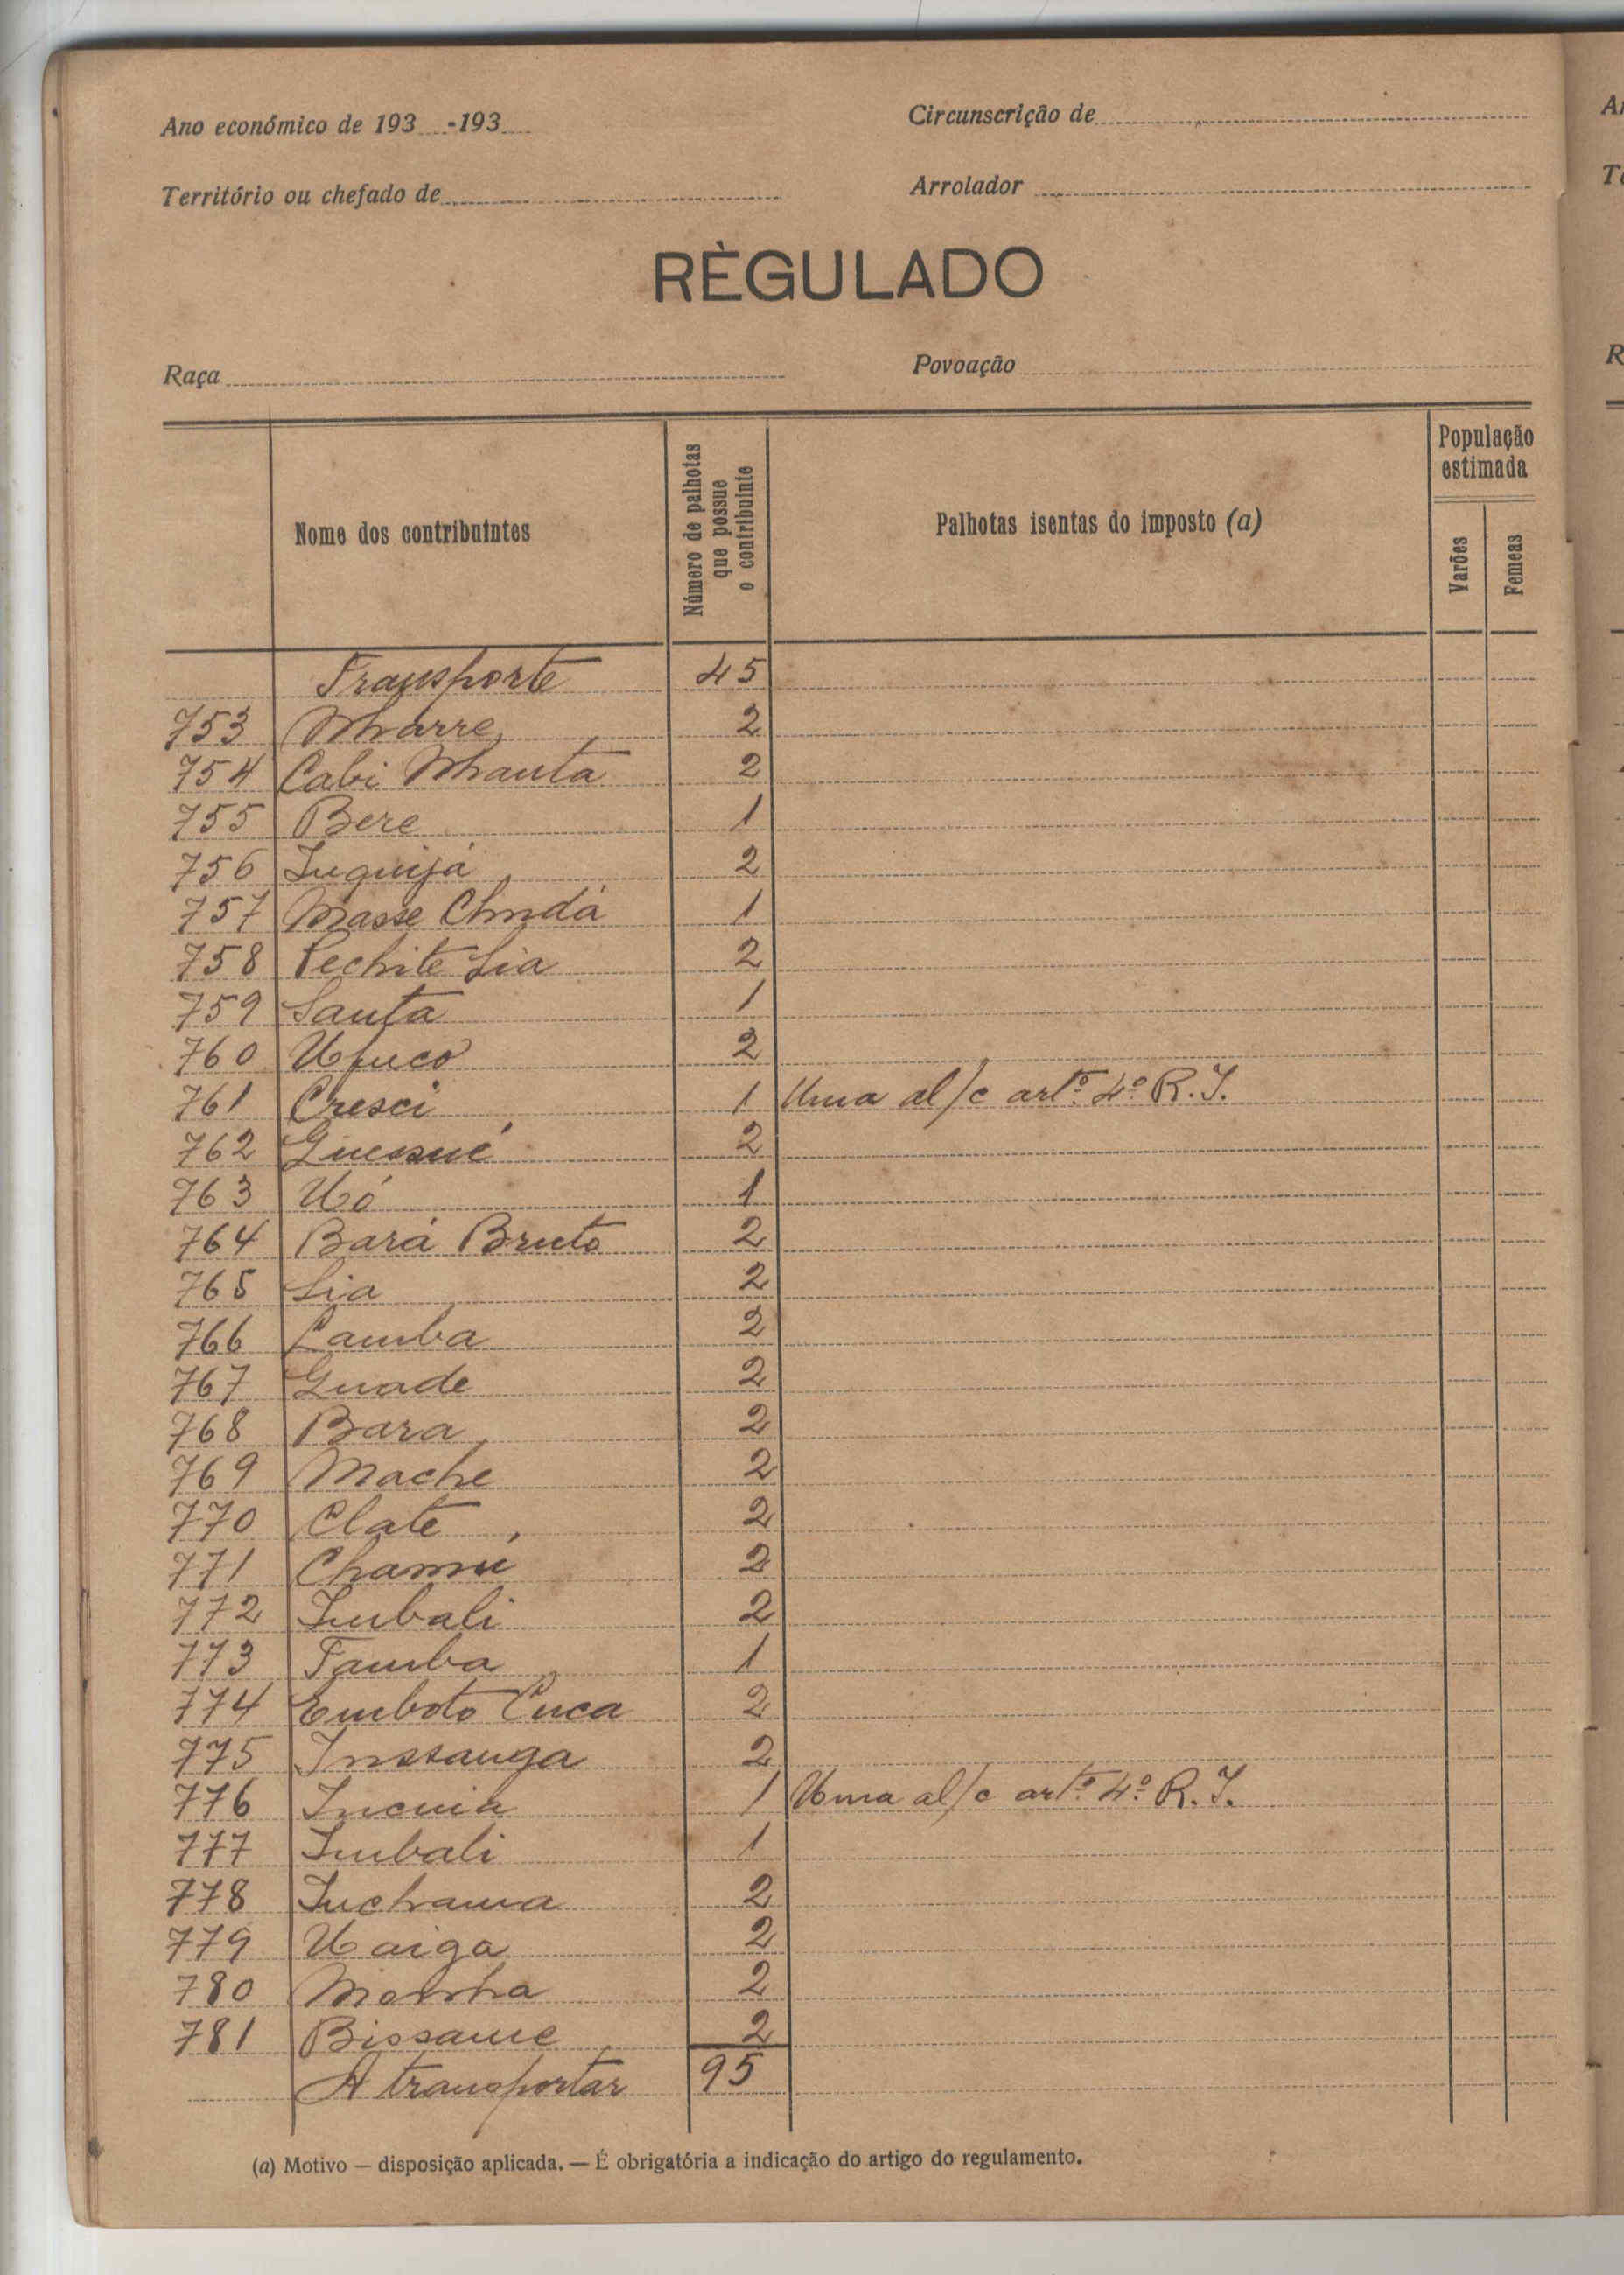 Ano económico de 193 -193
Circunscrição de
Território ou chefado de
Arrolador
RÈGULADO
Raça
Povoação
Nome dos contribuintes
Número de palhotas que possue o contribuinte
Palhotas isentas do imposto (a)
População estimada
Varões
Femeas
Transporte 45
753 Nharre 2
754 Cabi Nhanta 2
755 Bere 1
756 Inquijá 2
757 Masse 1
758 Pechite Lia 2
759 Santa 1
760 2
761 Cresci 1 Uma al/c artº. 4º R. I.
762 Guessué 2
763 Uó 1
764 Bará Bruto 2
765 Lia 2
766 Lamba 2
767 Guade 2
768 Bara 2
769 Mache 2
770 Clate 2
771 Chamú 2
772 Imbali 2
773 Tamba 1
774 Emboto Cuca 2
775 Inssanga 2
776 1 Uma al/c artº. 4º R. I.
777 Imbali 1
778 Inchama 2
779 Uaiga 2
780 2
781 Bissame 2
A transportar 95
(a) Motivo — disposição aplicada. — É obrigatória a indicação do artigo do regulamento.